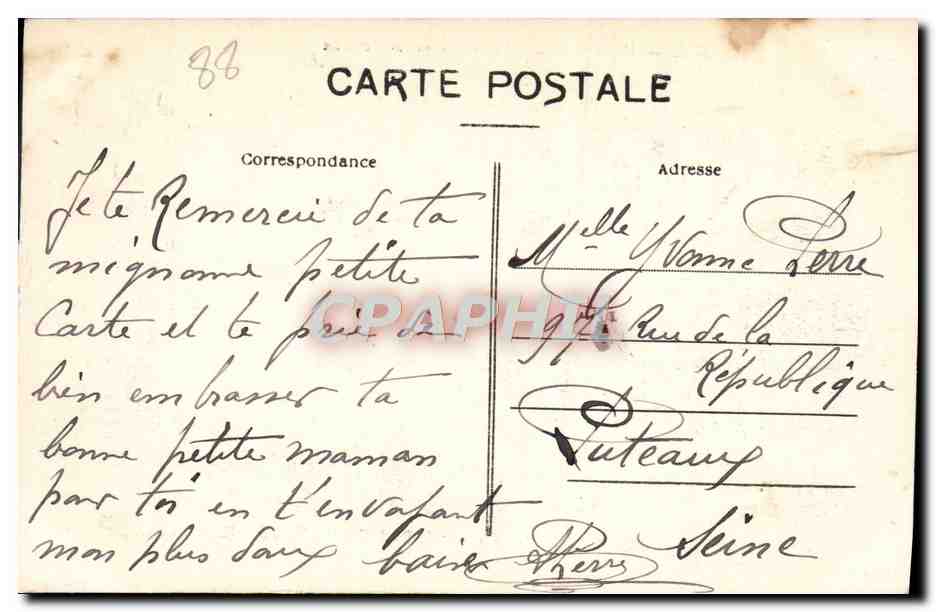 88
CARTE POSTALE
Correspondance
Je te Remercie de ta
mignonne petite
Carte et te prie de
bien embrasser ta
bonne petite maman
pour toi en t'envoyant
mon plus doux baiser
Adresse
Melle Yvonne Perre
Rue de la
République
Puteaux
Seine
CPAPHIL